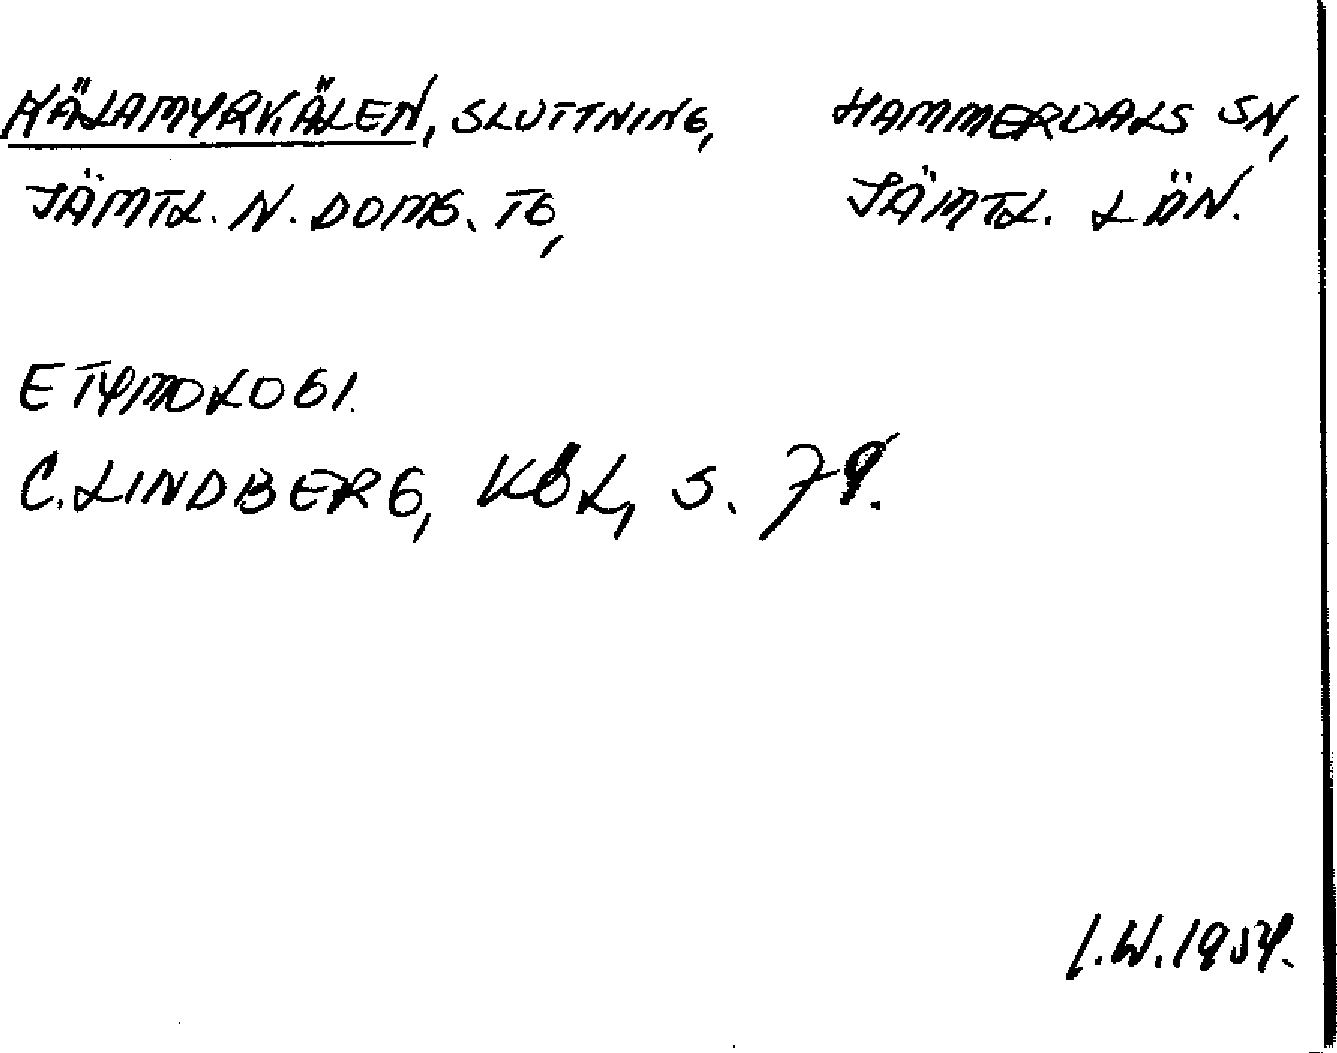 HÄLAMYRKÄLEN, SLUTTNING, HAMMERDALS SN,
JÄMTL. N. DOMS. TG, JÄMTL. LÄN.
ETYMOLOGI.
C. LINDBERG, KÖL, S. 79.
I.W. 1954.